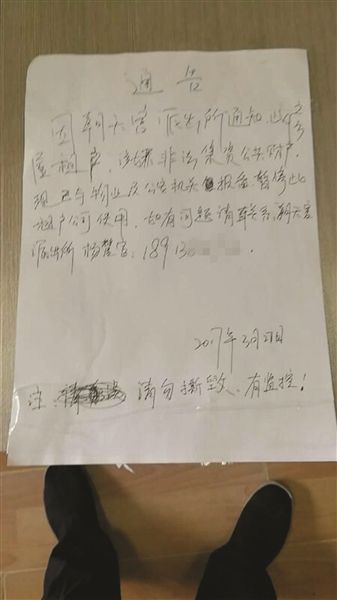 通告
因朝天宫派出所通知,此
屋租户,涉嫌非法集资公共财产,
现已与物业及公安机关报备暂停此
租户公司使用,如有问题请联系,朝天宫
派出所 杨警官.18913
2017年3月
注 请勿撕毁、有监控!